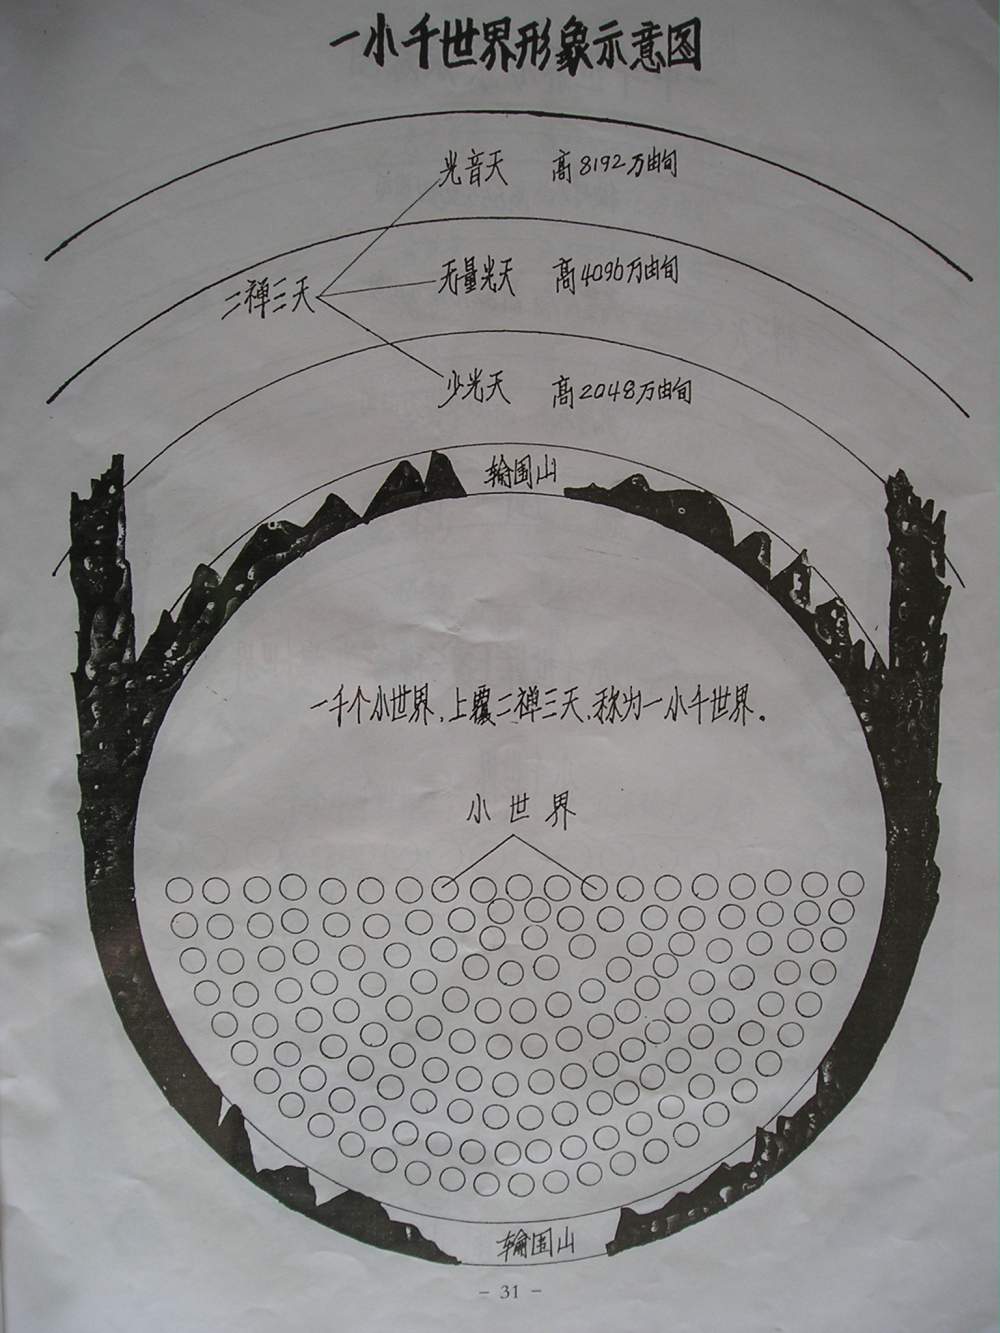 一小千世界形象示意图
光音天 高8192万由旬
二禅三天
无量光天 高4096万由旬
少光天 高2048万由旬
轮围山
一千个小世界,上覆二禅三天,称为一小千世界。
小世界
轮围山
- 31 -